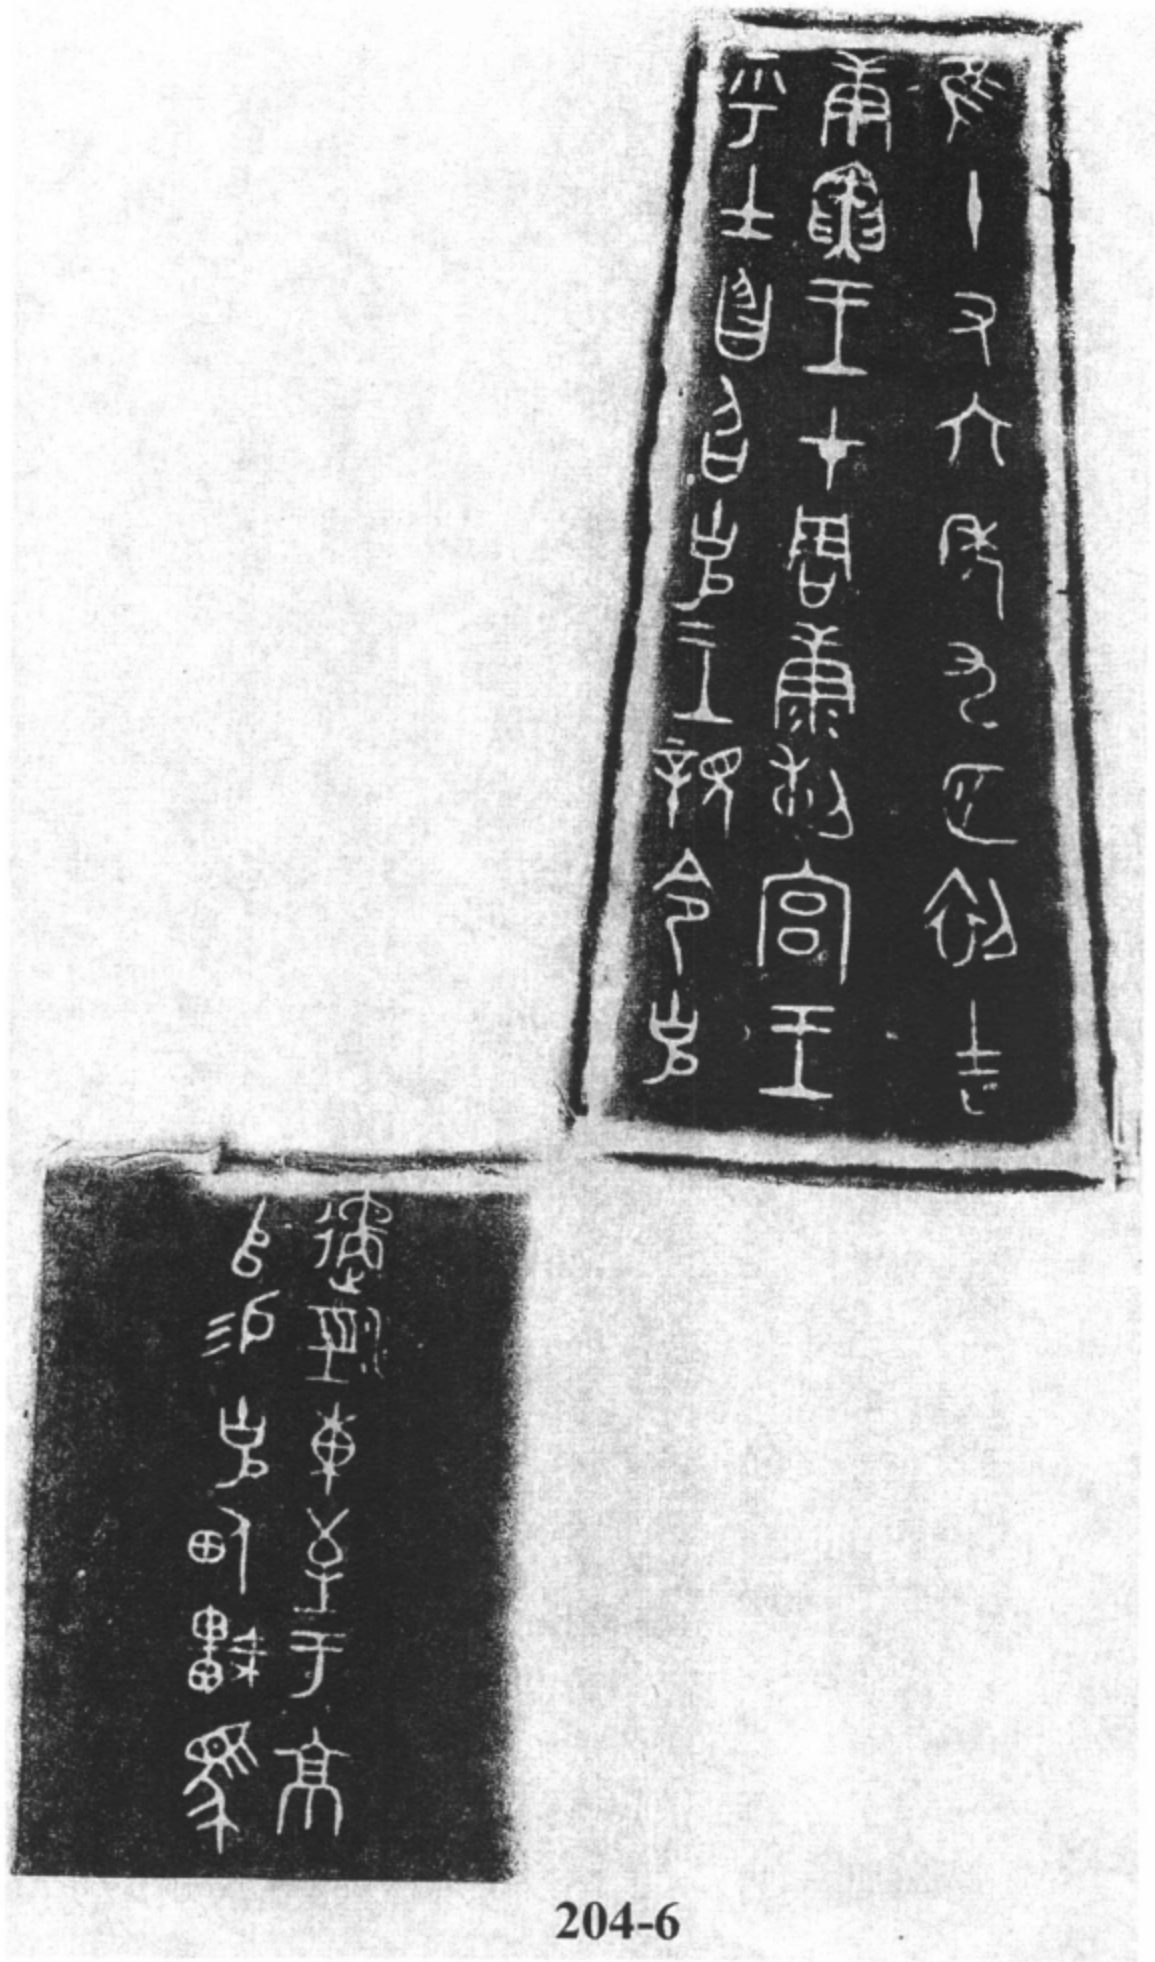 隹十又六年九月初吉
庚寅王才周康剌宮王
乎士曶召克王親令克
遹涇東至于京
𠂤易克甸車馬
204-6